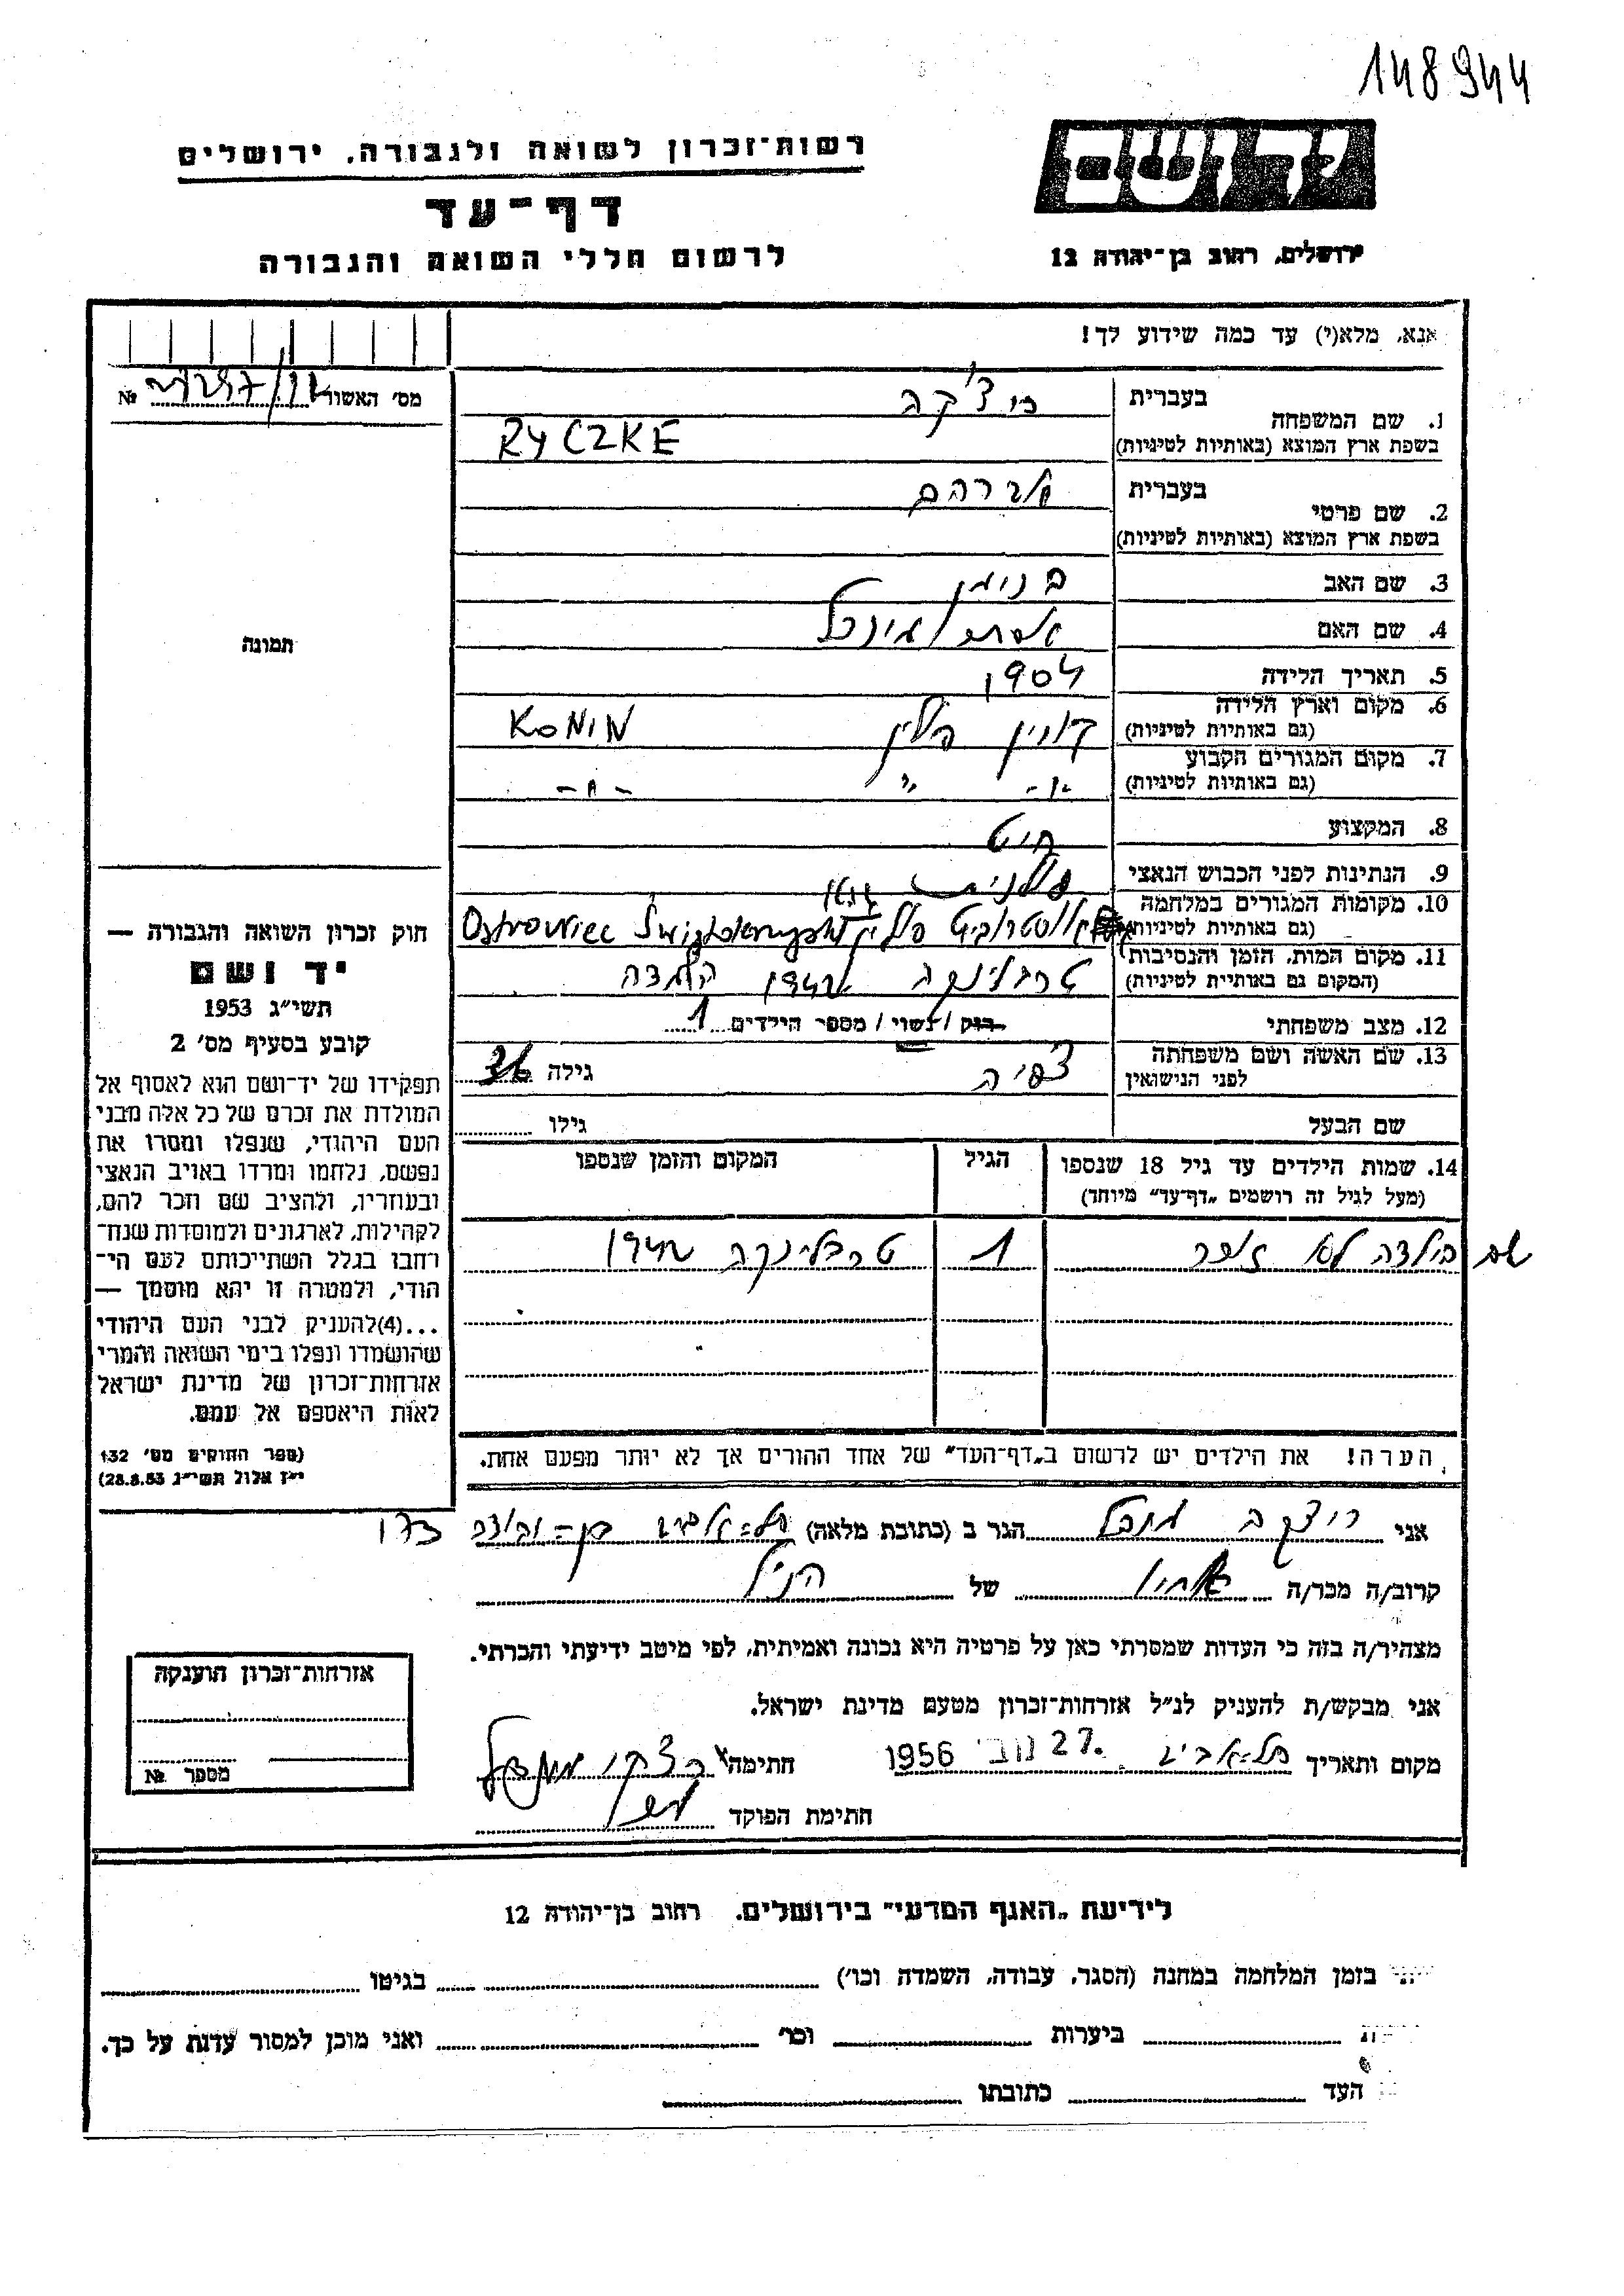 148944
רשות־זכרון לשואה ולגבורה, ירושלים
דף־עד
לרשום חללי השואה והגבורה
יד ושם
ירושלים, רחוב בן־יהודה 12
אנא, מלא(י) עד כמה שידוע לך!
מס' האשור №
1. שם המשפחה בעברית ריצ'קה
בשפת ארץ המוצא (באותיות לטיניות) RYCZKE
2. שם פרטי בעברית אברהם
בשפת ארץ המוצא (באותיות לטיניות)
3. שם האב בנימן
4. שם האם אסתר
5. תאריך הלידה 1904
6. מקום וארץ הלידה (גם באותיות לטיניות) קונין פולין KONIN
7. מקום המגורים הקבוע (גם באותיות לטיניות) -"- " -"-
8. המקצוע חייט
9. הנתינות לפני הכבוש הנאצי פולנית
10. מקומות המגורים במלחמה (גם באותיות לטיניות) אוסטרוביץ פולין Ostrowiec
11. מקום המות, הזמן והנסיבות (המקום גם באותיות לטיניות) טרבלינקה 1942 השמדה
12. מצב משפחתי רוק / נשוי / מספר הילדים 1
13. שם האשה ושם משפחתה לפני הנישואין צפיה גילה 36
שם הבעל גילו
14. שמות הילדים עד גיל 18 שנספו (מעל לגיל זה רושמים „דף־עד" מיוחד) הגיל המקום והזמן שנספו
שם הילדה לא זכור 1 טרבלינקה 1942
הערה! את הילדים יש לרשום ב„דף־העד" של אחד ההורים אך לא יותר מפעם אחת.
תמונה
חוק זכרון השואה והגבורה —
יד ושם
תשי״ג 1953
קובע בסעיף מס' 2
תפקידו של יד־ושם הוא לאסוף אל
המולדת את זכרם של כל אלה מבני
העם היהודי, שנפלו ומסרו את
נפשם, נלחמו ומרדו באויב הנאצי
ובעוזריו, ולהציב שם וזכר להם,
לקהילות, לארגונים ולמוסדות שנח־
רחבו בגלל השתייכותם לעם הי־
הודי, ולמטרה זו יהא מוסמך —
...(4)להעניק לבני העם היהודי
שהושמדו ונפלו בימי השואה והמרי
אזרחות־זכרון של מדינת ישראל
לאות היאספם אל עמם.
(ספר החוקים מס' 132
י״ז אלול תשי״ג 28.8.53)
אני מנדל הגר ב (כתובת מלאה) תל־אביב בן־יהודה 173
קרוב/ה מכר/ה אחיו של הנ״ל
מצהיר/ה בזה כי העדות שמסרתי כאן על פרטיה היא נכונה ואמיתית, לפי מיטב ידיעתי והכרתי.
אני מבקש/ת להעניק לנ״ל אזרחות־זכרון מטעם מדינת ישראל.
מקום ותאריך תל־אביב 27. נוב' 1956 חתימה
חתימת הפוקד
אזרחות־זכרון הוענקה
מספר №
לידיעת „האגף המדעי" בירושלים, רחוב בן־יהודה 12
בזמן המלחמה במחנה (הסגר, עבודה, השמדה וכו') בגיטו
ביערות וכו' ואני מוכן למסור עדות על כך.
העד כתובתו